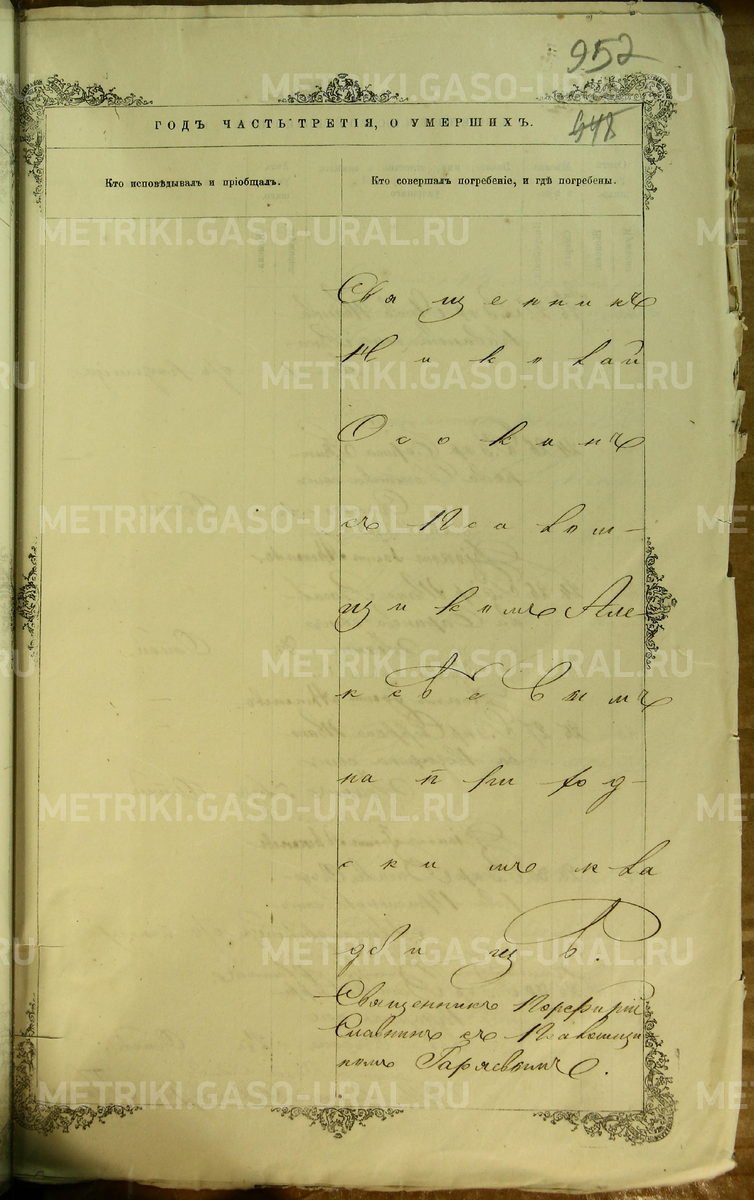 952
948
ГОДЪ ЧАСТЬ ТРЕТІЯ, О УМЕРШИХЪ.
Кто исповѣдывалъ и пріобщалъ.
Кто совершалъ погребеніе, и гдѣ погребены.
METRIKI.GASO-URAL.RU
Священникъ
Николай
Осокинъ
съ Псалом-
щикомъ Але-
ксѣевымъ
на приход-
скимъ кла
дбищѣ.
Священникъ Порфирій
Славнинъ съ Псаломщи
комъ Гаряевымъ.